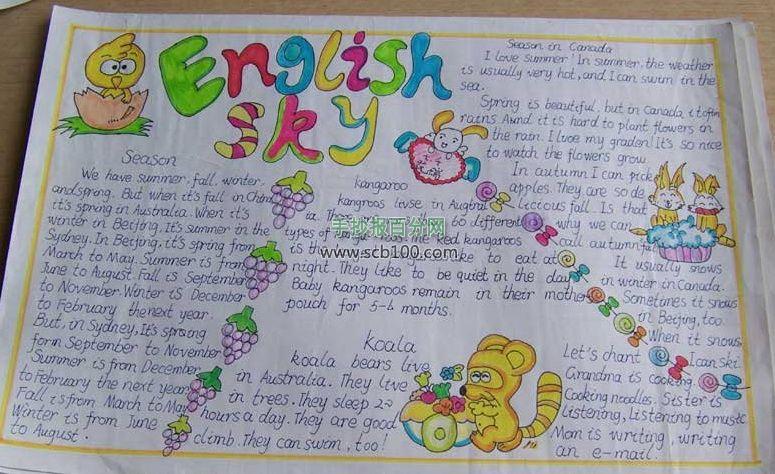 English
sky
Season
We have summer, fall, winter,
and spring. But when it's fall in China
it's spring in Australia. When it's
winter in Beijing, It's summer in the
Sydney. In Beijing, it's spring from
March to May. Summer is from
June to August. Fall is September
to November. Winter is December
to February the next year.
But, in Sydney, It's spring
form September to November
Summer is from December
to February the next year.
Fall is from March to May
Winter is from June
to August.
kangaroo
kangroos livse in
ia. They 60 different
types of red kangaroos
is the like to eat at
night. They like to be quiet in the day
Baby kangaroos remain in their mother
pouch for 5-6 months.
手抄报百分网
www.scb100.com
Koala
koala bears live
in Australia. They live
in trees. They sleep 22
hours a day. They are good
climb. They can swom, too!
Season in Canada
I love summer! In summer, the weather
is usually very hot, and I can swim in the
sea.
Spring is beautiful, but in Canada it ofen
rains it is hard to plant flowers in
the rain. I luve my graden! It's so nice
to watch the flowers grow.
In autumn I can pick
apples. They are so de
licious fall. Is that
why we can
call autumn fall
It usually snows
in winter in Canada.
Sometimes it snows
in Beijing, too.
When it snows.
I can ski.
Let's chant
Grandma is cooking
Cooking noodles. Sister is
listening, Listening to music
Mom is writing, writing
an e-mail.